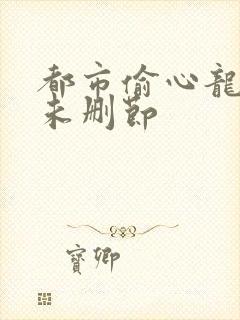 都市偷心龍
未删節
寳卿